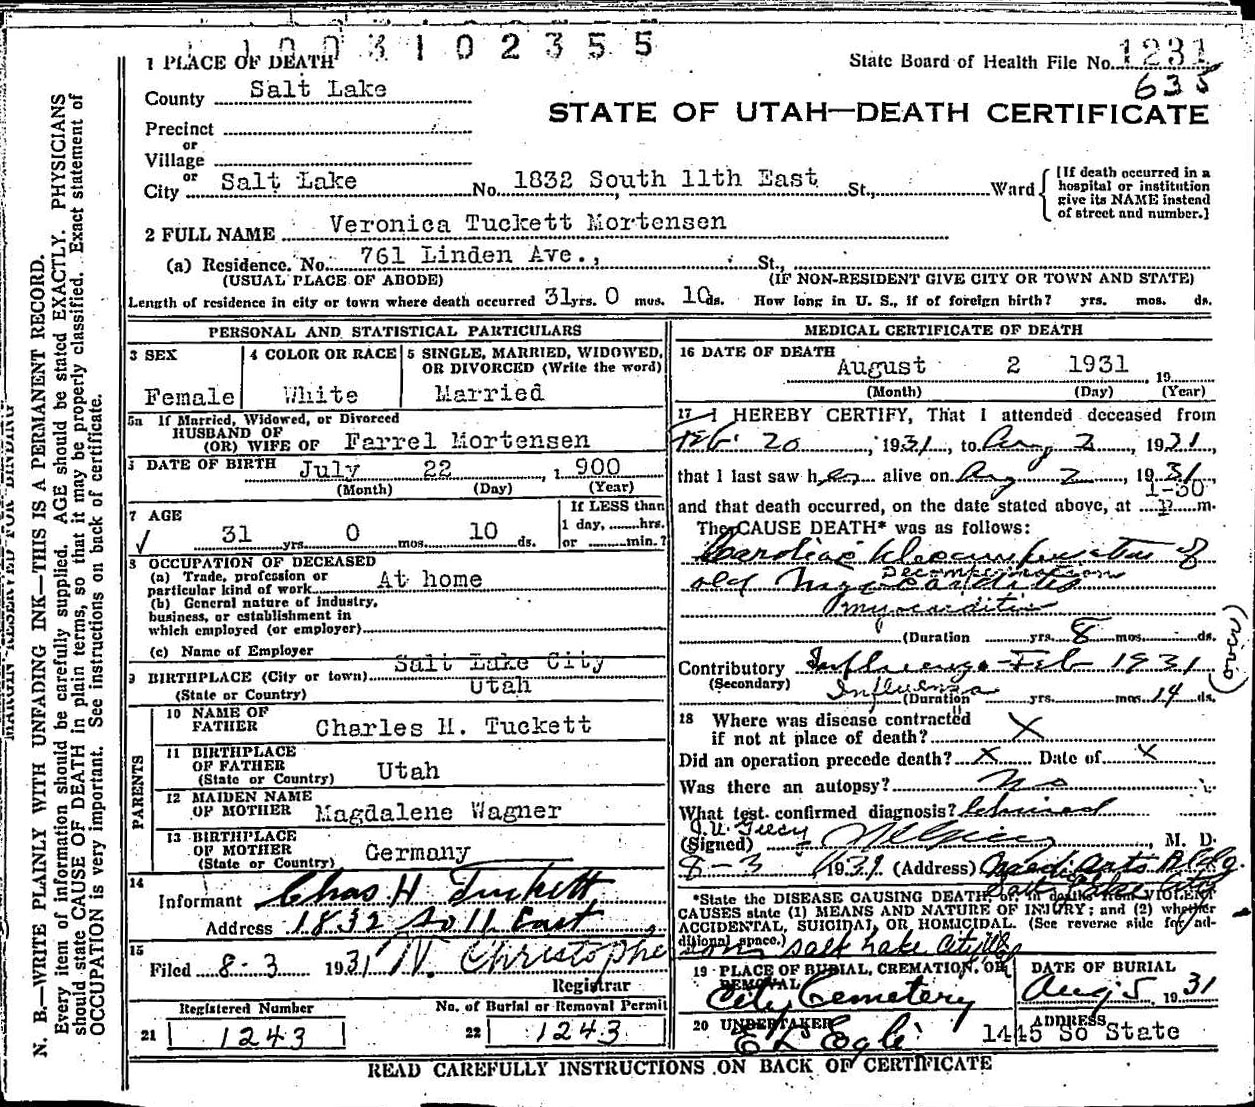 1003102355
1 PLACE OF DEATH
State Board of Health File No. 1231
635
County Salt Lake
STATE OF UTAH—DEATH CERTIFICATE
Precinct
or
Village
or
City Salt Lake No. 1832 South 11th East St., Ward
[If death occurred in a
hospital or institution
give its NAME instead
of street and number.]
2 FULL NAME Veronica Tuckett Mortensen
(a) Residence. No. 761 Linden Ave., St.,
(USUAL PLACE OF ABODE) (IF NON-RESIDENT GIVE CITY OR TOWN AND STATE)
Length of residence in city or town where death occurred 31 yrs. 0 mos. 10 ds. How long in U. S., if of foreign birth? yrs. mos. ds.
PERSONAL AND STATISTICAL PARTICULARS
3 SEX
Female
4 COLOR OR RACE
White
5 SINGLE, MARRIED, WIDOWED,
OR DIVORCED (Write the word)
Married
5a If Married, Widowed, or Divorced
HUSBAND OF
(OR) WIFE OF Farrel Mortensen
DATE OF BIRTH July 22, 1900
(Month) (Day) (Year)
7 AGE
31 yrs. 0 mos. 10 ds.
If LESS than
1 day, hrs.
or min.?
8 OCCUPATION OF DECEASED
(a) Trade, profession or
particular kind of work At home
(b) General nature of industry,
business, or establishment in
which employed (or employer)
(c) Name of Employer
9 BIRTHPLACE (City or town) Salt Lake City
(State or Country) Utah
PARENTS
10 NAME OF
FATHER Charles H. Tuckett
11 BIRTHPLACE
OF FATHER
(State or Country) Utah
12 MAIDEN NAME
OF MOTHER Magdalene Wagner
13 BIRTHPLACE
OF MOTHER
(State or Country) Germany
14
Informant Chas H. Tuckett
Address 1832 So 11 East
15
Filed 8-3 1931 N. Christophe
Registrar
Registered Number
21 1243
No. of Burial or Removal Permit
22 1243
MEDICAL CERTIFICATE OF DEATH
16 DATE OF DEATH
August 2 1931, 19
(Month) (Day) (Year)
17 I HEREBY CERTIFY, That I attended deceased from
Feb. 20, 1931, to Aug 2, 1931,
that I last saw her alive on Aug 2, 1931
1-30
and that death occurred, on the date stated above, at P m.
The CAUSE DEATH* was as follows:
Cardiac Decompensation of
Decompensation
old Myocarditis
myocarditis
(Duration yrs. 8 mos. ds.
Contributory Influenza - Feb 1931
(Secondary) Influenza
(Duration yrs. mos. 14 ds.
18 Where was disease contracted
if not at place of death? X
Did an operation precede death? X Date of X
Was there an autopsy? no
What test confirmed diagnosis? Clinical
(Signed) M. D.
8-3 1931 (Address) Medical Arts Bldg.
Salt Lake City
*State the DISEASE CAUSING DEATH, or, in deaths from VIOLENT
CAUSES state (1) MEANS AND NATURE OF INJURY; and (2) whether
ACCIDENTAL, SUICIDAL, OR HOMICIDAL. (See reverse side for ad-
ditional space.) Salt Lake City
19 PLACE OF BURIAL, CREMATION, OR
REMOVAL
City Cemetery
DATE OF BURIAL
Aug 5, 1931
20 UNDERTAKER
E L Eagle
ADDRESS
1445 So State
READ CAREFULLY INSTRUCTIONS ON BACK OF CERTIFICATE
MARGIN RESERVED FOR BINDING
N. B.—WRITE PLAINLY WITH UNFADING INK—THIS IS A PERMANENT RECORD.
Every item of information should be carefully supplied. AGE should be stated EXACTLY. PHYSICIANS
should state CAUSE OF DEATH in plain terms, so that it may be properly classified. Exact statement of
OCCUPATION is very important. See instructions on back of certificate.